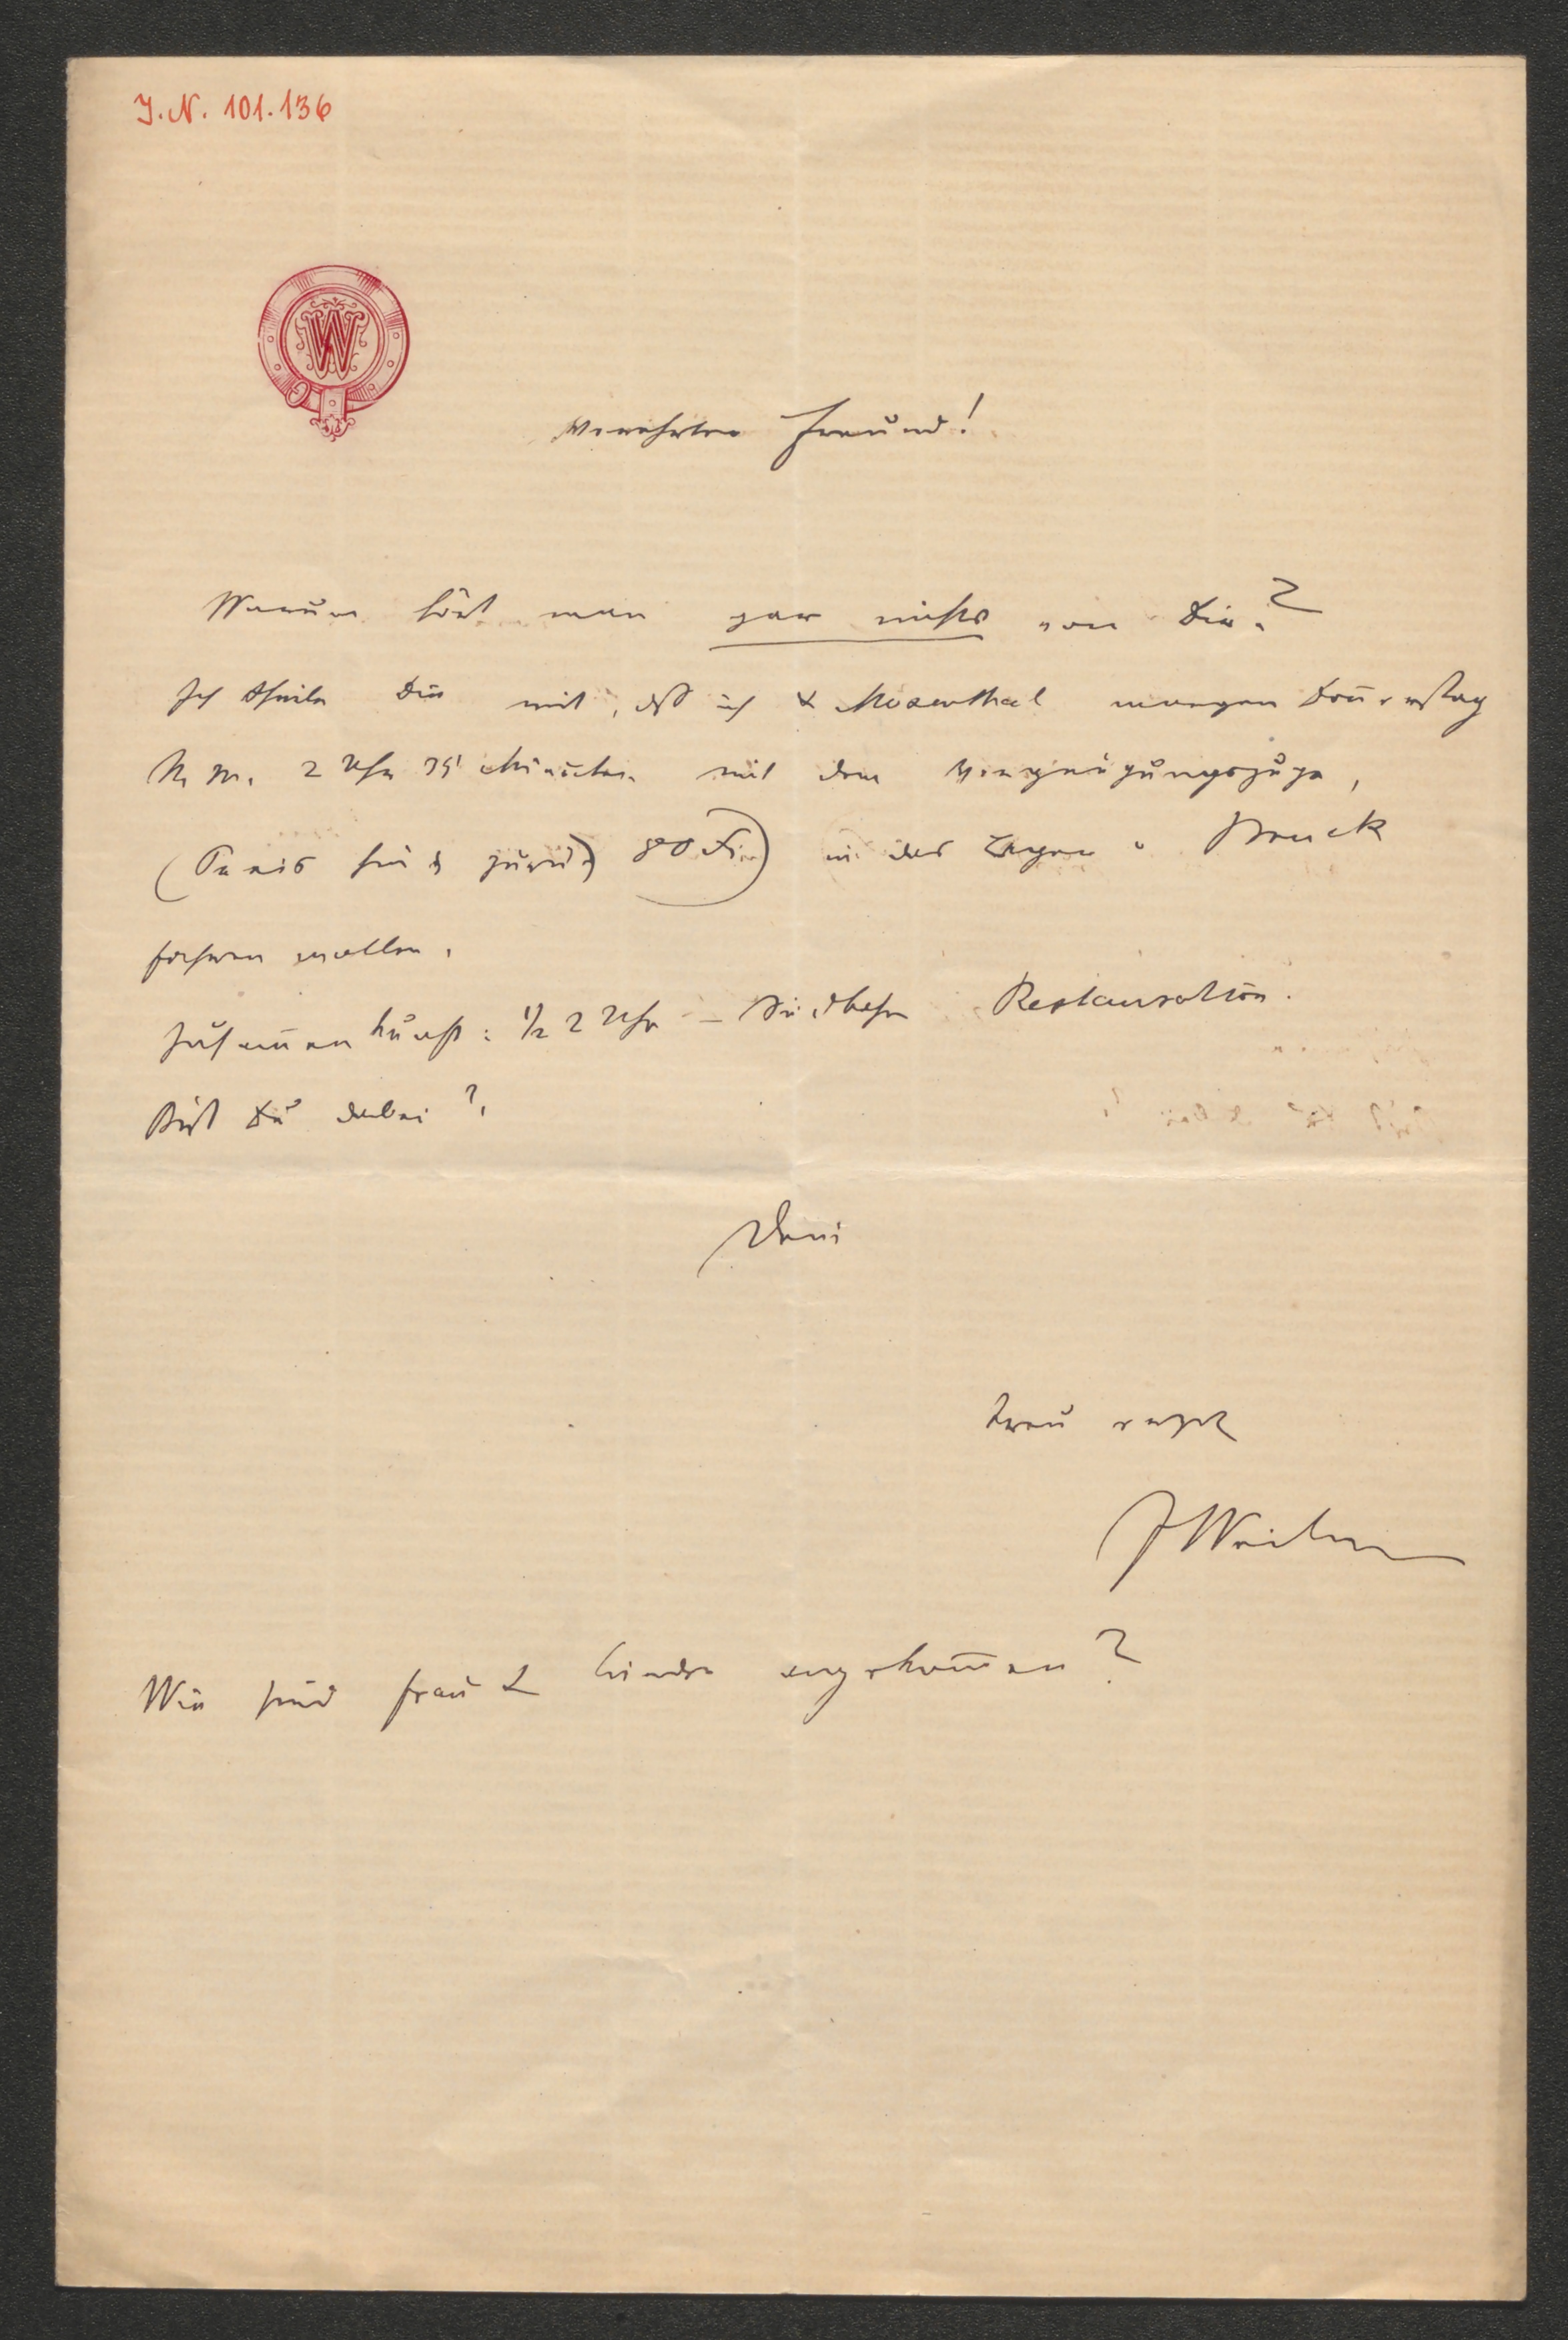 J.N. 101.136
W
Verehrter Freund!
Warum hört man gar nichts von Dir?
Ich theile Dir mit, dß ich & Mosenthal morgen Don̄erstag
N. M. 2 Uhr 35 Minuten mit dem Vergnügungszuge,
(Preis hin & zurück 80 x) in das Lager v Bruck
fahren wollen.
Zusam̄enkunft: ½ 2 Uhr – Südbahn Restauration.
Bist Du dabei?
Dein
treu ergeb
JWeilen
Wie sind Frau & Kinder angekom̄en?